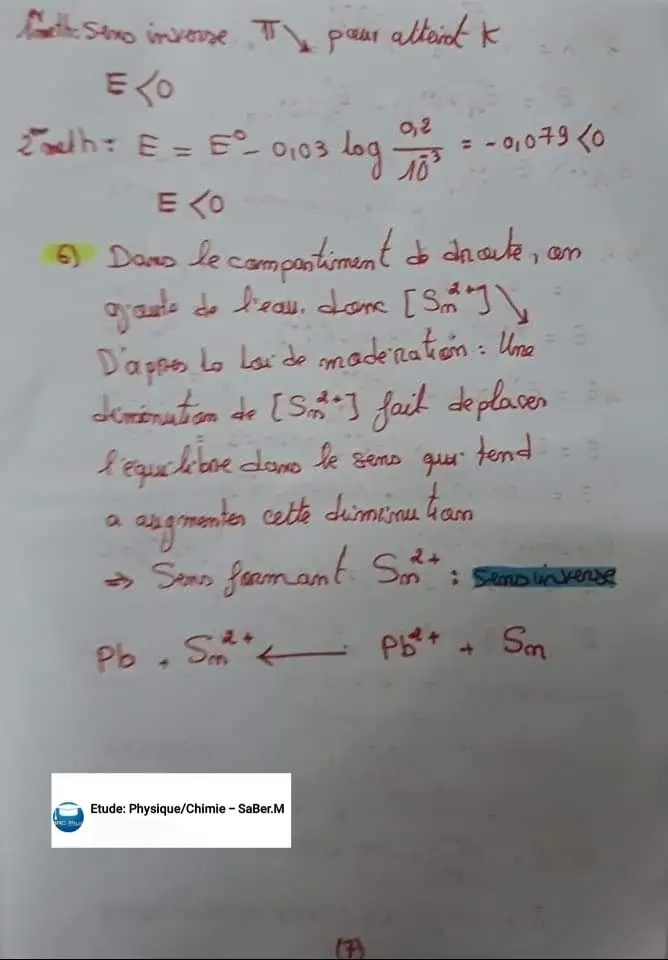 1ºmeth: Sens inverse π↘ pour atteint K
E < 0
2ºmeth: E = E° - 0,03 log 0,2/10⁻³ = -0,079 < 0
E < 0
6) Dans le compartiment de droite, on
ajoute de l'eau. donc [Sn²⁺] ↘
D'après la Loi de modération : Une
diminution de [Sn²⁺] fait deplacer
l'équilibre dans le sens qui tend
a augmenter cette diminution
⇒ Sens formant Sn²⁺ : sens inverse
Pb + Sn²⁺ ← Pb²⁺ + Sn
Etude: Physique/Chimie – SaBer.M
(7)